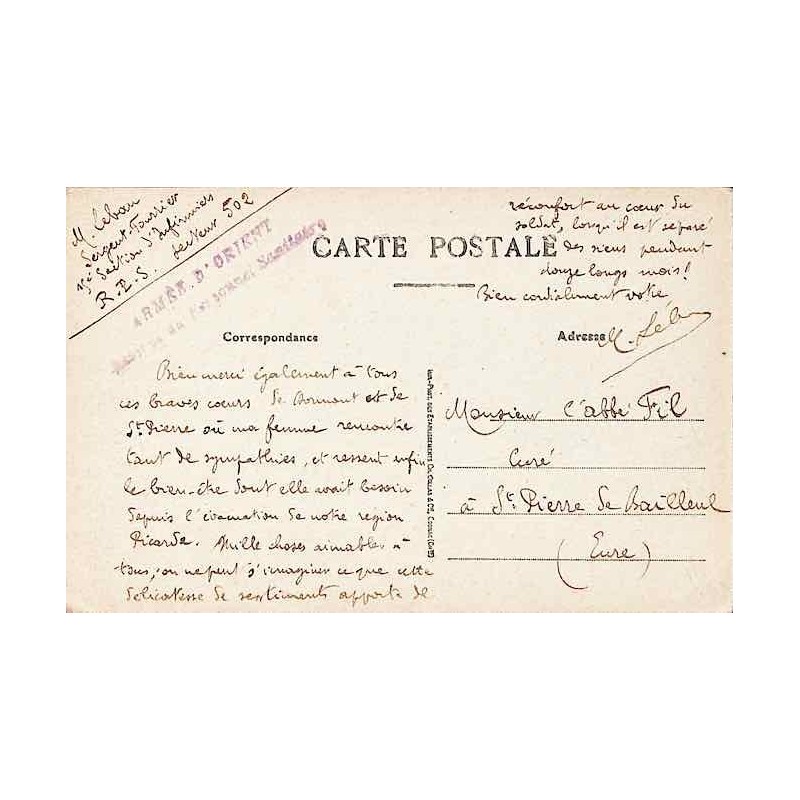 M. Leban
Sergent-Fourrier
15e Section d'Infirmiers
R.P.S. Secteur 502
ARMÉE D'ORIENT
du Personnel Sanitaire
CARTE POSTALE
Correspondance
Bien merci également à tous
ces braves cœurs de Bonmont et de
St. Pierre où ma femme rencontre
tant de sympathies, et ressent enfin
le bien-être dont elle avait besoin
depuis l'évacuation de notre région
Picarde. Mille choses aimables à
tous, on ne peut s'imaginer ce que cette
délicatesse de sentiments apporte de
réconfort au cœur du
soldat, lorsqu'il est séparé
des siens pendant
douze longs mois!
Bien cordialement votre
M. Leban
Adresse
Monsieur l'abbé Fil
Curé
à St. Pierre de Bailleul
(Eure)
DES ETABLISSEMENTS CH. COLLAS & Cie, COGNAC